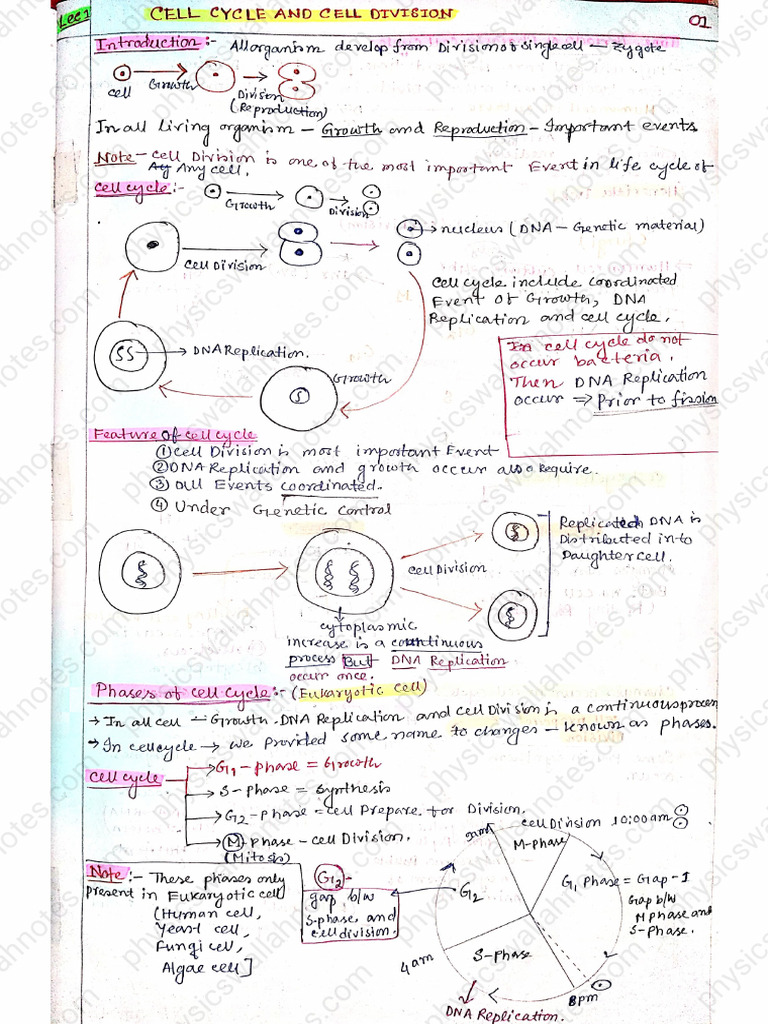 Lec 1
CELL CYCLE AND CELL DIVISION
01
Introduction :- All organism develop from Division of single cell — Zygote
cell
Growth
Division
(Reproduction)
In all Living organism — Growth and Reproduction — Important events
Note — Cell Division is one of the most important Event in life cycle of
Any cell.
cell cycle :-
Growth
Division
cell Division
nucleus (DNA — Genetic material)
cell cycle include coordinated
Event of Growth, DNA
Replication and cell cycle.
DNA Replication.
Growth
In cell cycle do not
occur bacteria.
Then DNA Replication
occur ⇒ Prior to fission
Feature of cell cycle
① cell Division is most important Event
② DNA Replication and growth occur also Require.
③ All Events coordinated.
④ Under Genetic control
cell Division
Replicated DNA is
Distributed in to
Daughter cell.
cytoplasmic
increase is a countinuous
process But DNA Replication
occur once.
Phases of cell cycle :- (Eukaryotic cell)
→ In all cell — Growth. DNA Replication and cell Division is a continuous process
→ In cell cycle → we provided some name to changes — known as phases.
cell cycle
G1 - phase = Growth
S - phase = Synthesis
G2 - phase = cell Prepare for Division.
M - phase - cell Division.
(Mitosis)
Note :- These phases only
present in Eukaryotic cell
(Human cell,
Yeast cell,
Fungi cell,
Algae cell]
G2 -
gap b/w
S-phase, and
cell division.
9am
cell Division 10:00am
M-Phase
G1 Phase = Gap - 1
Gap b/w
M phase and
S-Phase.
G2
S-Phase
4am
8pm
DNA Replication.
physicswallahnotes.com